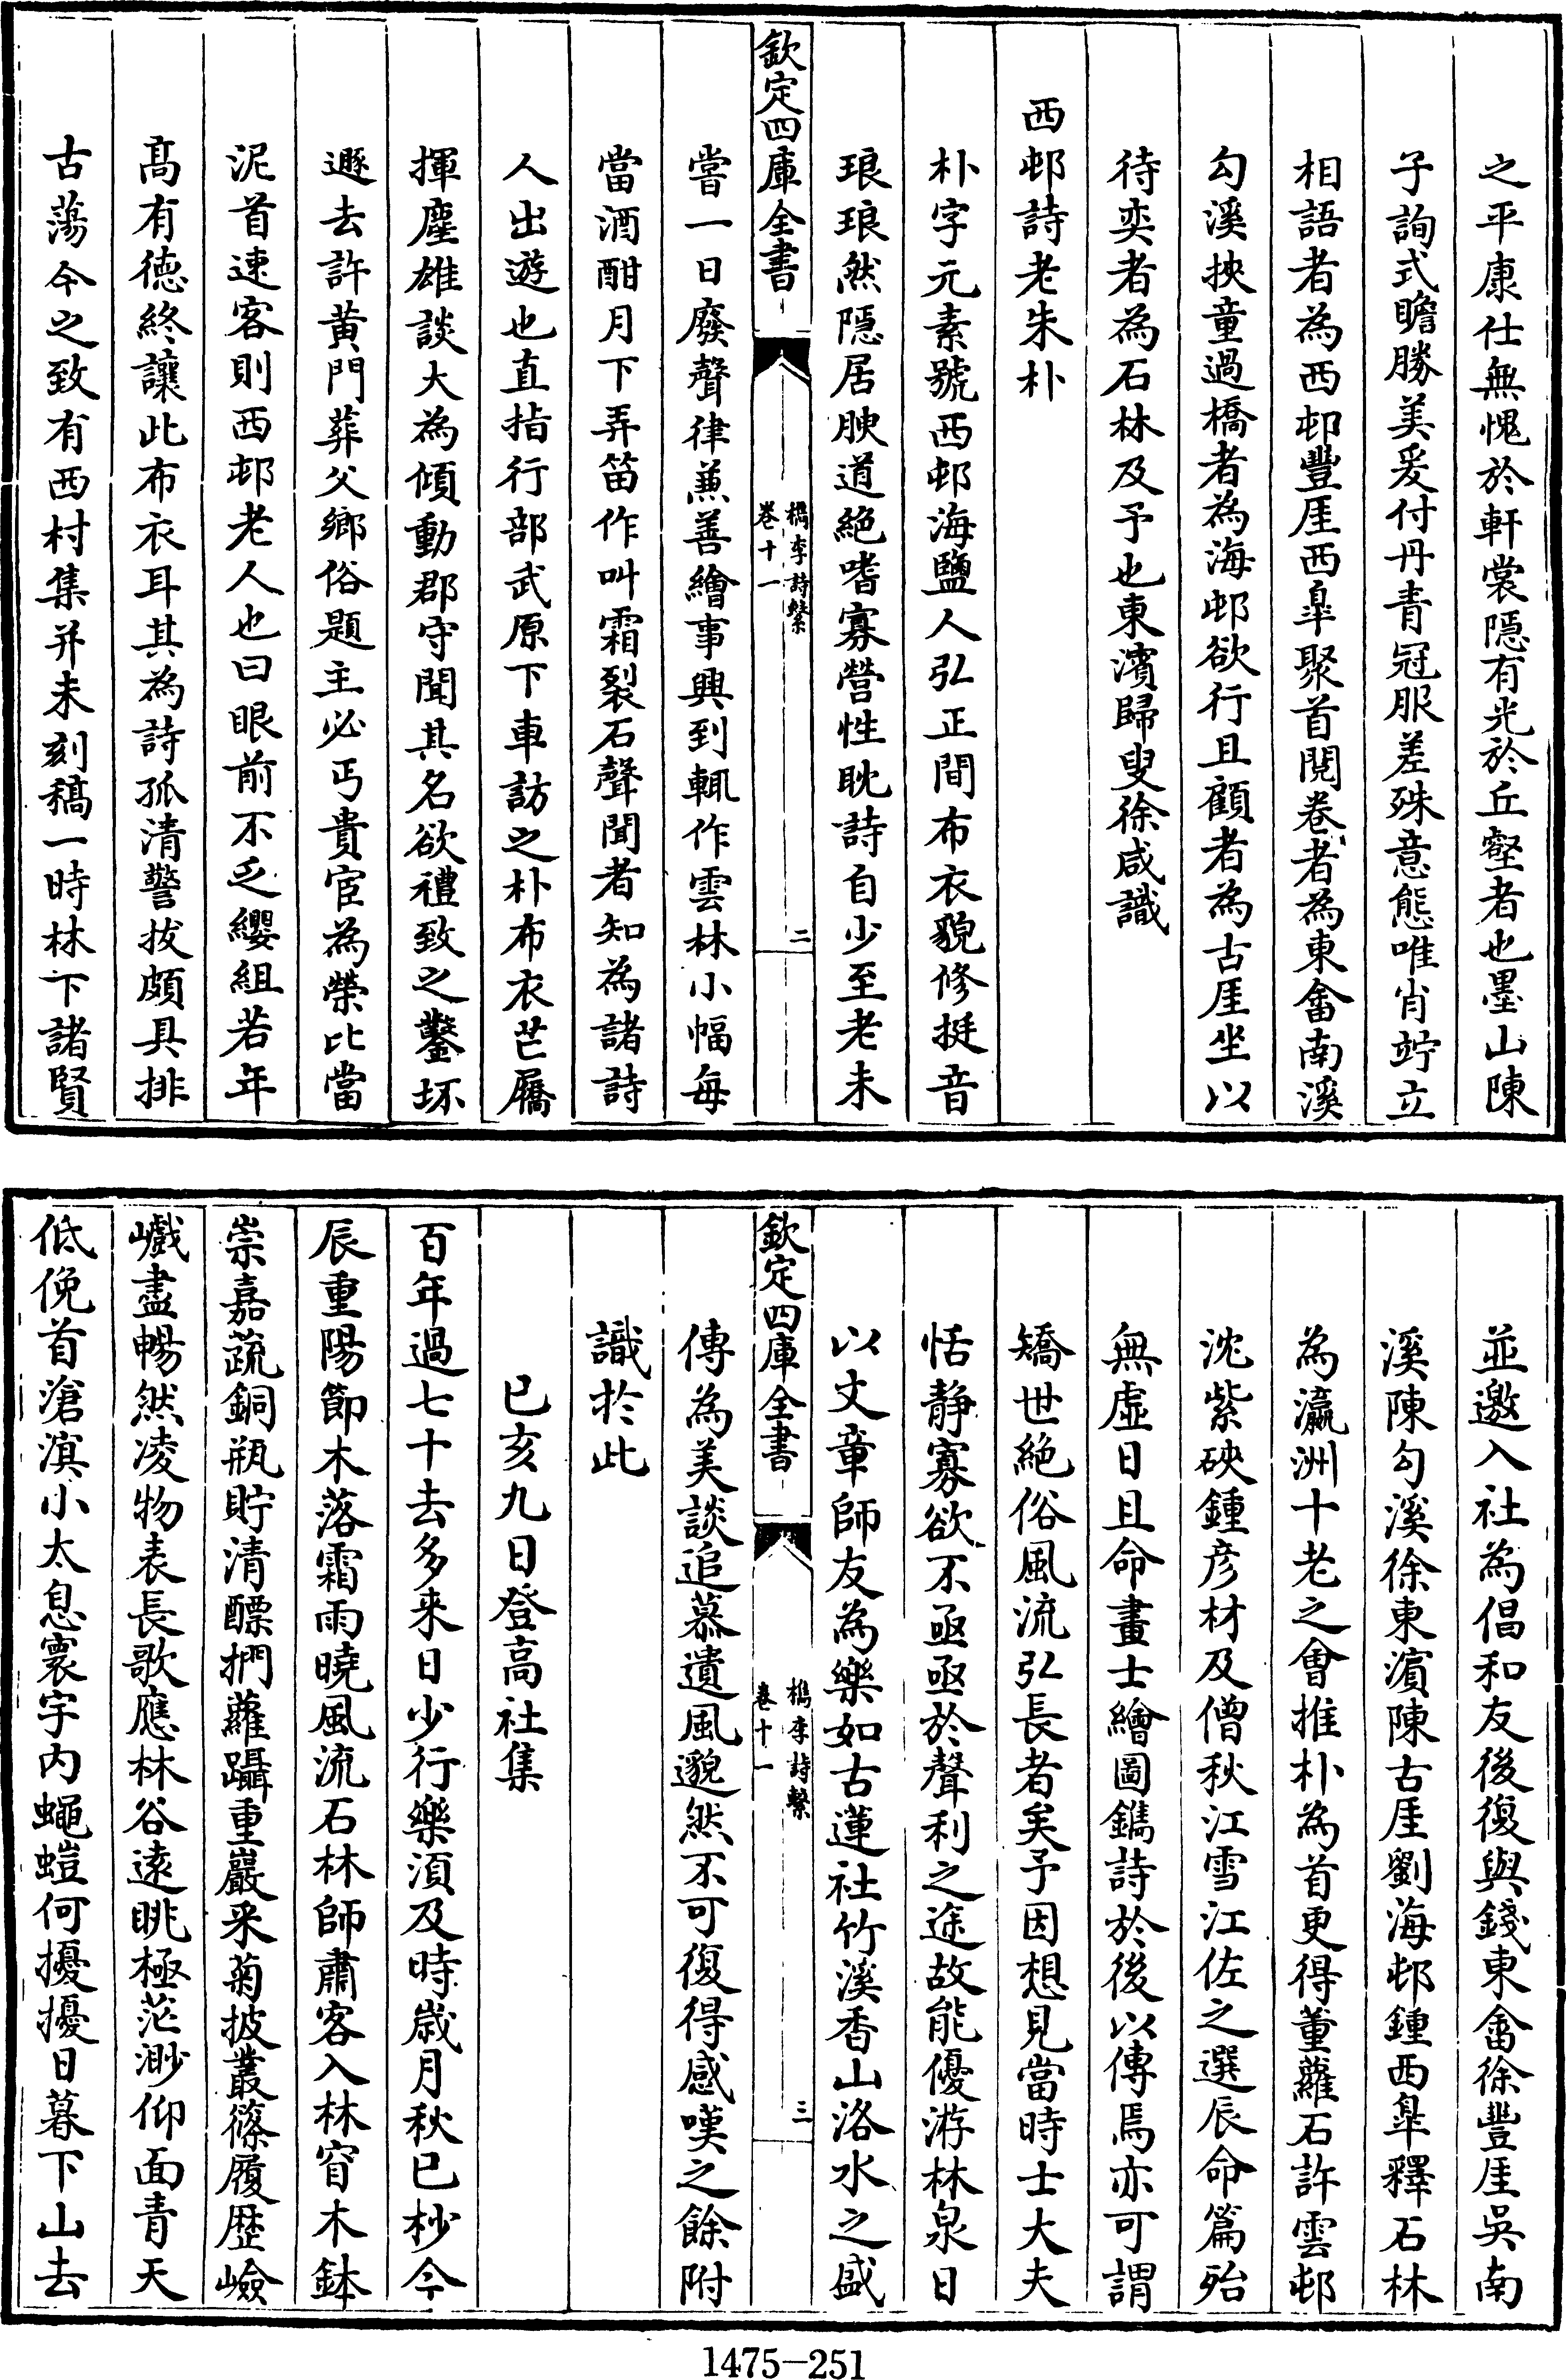 之平康仕無愧於軒裳隠有光於丘壑者也墨山陳
子詢式瞻勝美爰付丹青冠服差殊意態唯肖竚立
相語者為西邨豐厓西臯聚首閱卷者為東畬南溪
勾溪挾童過橋者為海邨欲行且顧者為古厓坐以
待奕者為石林及予也東濱歸叟徐咸識
西邨詩老朱朴
朴字元素號西邨海鹽人弘正間布衣貌修挺音
琅琅然隠居腴道絶嗜寡營性耽詩自少至老未
欽定四庫全書
檇李詩繫
卷十一
二
嘗一日廢聲律兼善繪事興到輒作雲林小幅每
當酒酣月下弄笛作叫霜裂石聲聞者知為諸詩
人出遊也直指行部武原下車訪之朴布衣芒屩
揮麈雄談大為傾動郡守聞其名欲禮致之鑿坏
遯去許黄門葬父鄉俗題主必丐貴宦為榮比當
泥首速客則西邨老人也曰眼前不乏纓組若年
髙有徳終讓此布衣耳其為詩孤清警拔頗具排
古蕩今之致有西村集并未刻稿一時林下諸賢
並邀入社為倡和友後復與錢東畬徐豐厓吳南
溪陳勾溪徐東濱陳古厓劉海邨鍾西臯釋石林
為瀛洲十老之會推朴為首更得董蘿石許雲邨
沈紫硤鍾彦材及僧秋江雪江佐之選辰命篇殆
無虛日且命畫士繪圖鐫詩於後以傳焉亦可謂
矯世絶俗風流弘長者矣予因想見當時士大夫
恬静寡欲不亟亟於聲利之途故能優游林泉日
以文章師友為樂如古蓮社竹溪香山洛水之盛
欽定四庫全書
檇李詩繫
卷十一
三
傳為美談追慕遺風邈然不可復得感嘆之餘附
識於此
已亥九日登高社集
百年過七十去多来日少行樂須及時歲月秋已杪今
辰重陽節木落霜雨曉風流石林師肅客入林窅木鉢
崇嘉蔬銅瓶貯清醥捫蘿躡重巖采菊披叢篠履歴嶮
巇盡暢然凌物表長歌應林谷逺眺極茫渺仰面青天
低俛首滄溟小太息寰宇内蠅螘何擾擾日暮下山去
1475—251